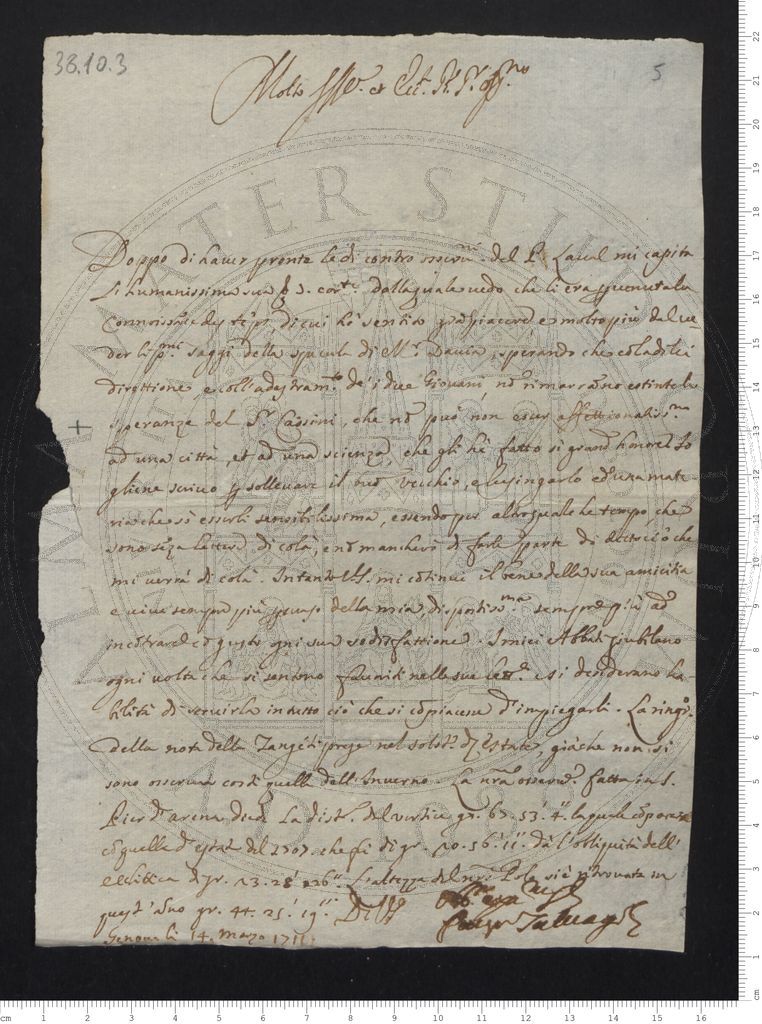 38.10.3
5
Molto
Doppo di haver pronte le di contro osserv.ni del P. Laval mi capita
la humanissima sua 3. corr.te dalla quale vedo che li era pervenuta la
di cui hò sentito gra piacere e molto più dal ve-
der li p.mi saggi della specula di M.r sperando che colla di lei
direttione, e coll'adestram.to de' i due Giovani, nõ rimarrãno estinte le
speranze del S.r Cassini, che nõ può non esser affettionatiss.mo
ad una città, et ad una scienza, che gli hà fatto si grand'honore. Io
gliene scrivo p sollevare il buõ vecchio, e lusingarlo cõ una mate-
ria che sò esserli sensibilissima, essendo per altro qualche tempo, che
sono sẽza lettere di colà, e nõ mancherò di farle parte di tutto ciò che
mi verrà di colà. Intanto V.S. mi cõtinui il bene della sua amicitia
e viva sempre più della mia, dispostiss.ma sempre più ad
incõtrare cõ gusto ogni sua sodisfattione. I miei Abbati giubilano
ogni volta che si sentono favoriti nelle sue lett.e e si desiderano ha-
bilità di servirla in tutto ciò che si cõpiacesse d'impiegarli. La ringr.o
della nota delle Tangẽti prese nel solst.o di Estate, giàche non si
sono osservate costì quelle dell'Inverno. La nr̃a osserv.e fatta in S.
Pier d'arena diede La dist. del vertice gr. 67. 53'. 4''. la quale cõparata
cõ quella d'estate del 1707. che fù di gr. 20. 56'. 11''. dà l'obliquità dell'
eclittica di gr. 23. 28'. 26''. L'altezza del nr̃o Polo si è ritrovata in
quest'Anno gr. 44. 25'. 19''. Di V.S.
Genova li 14. Marzo 1711
Salvago